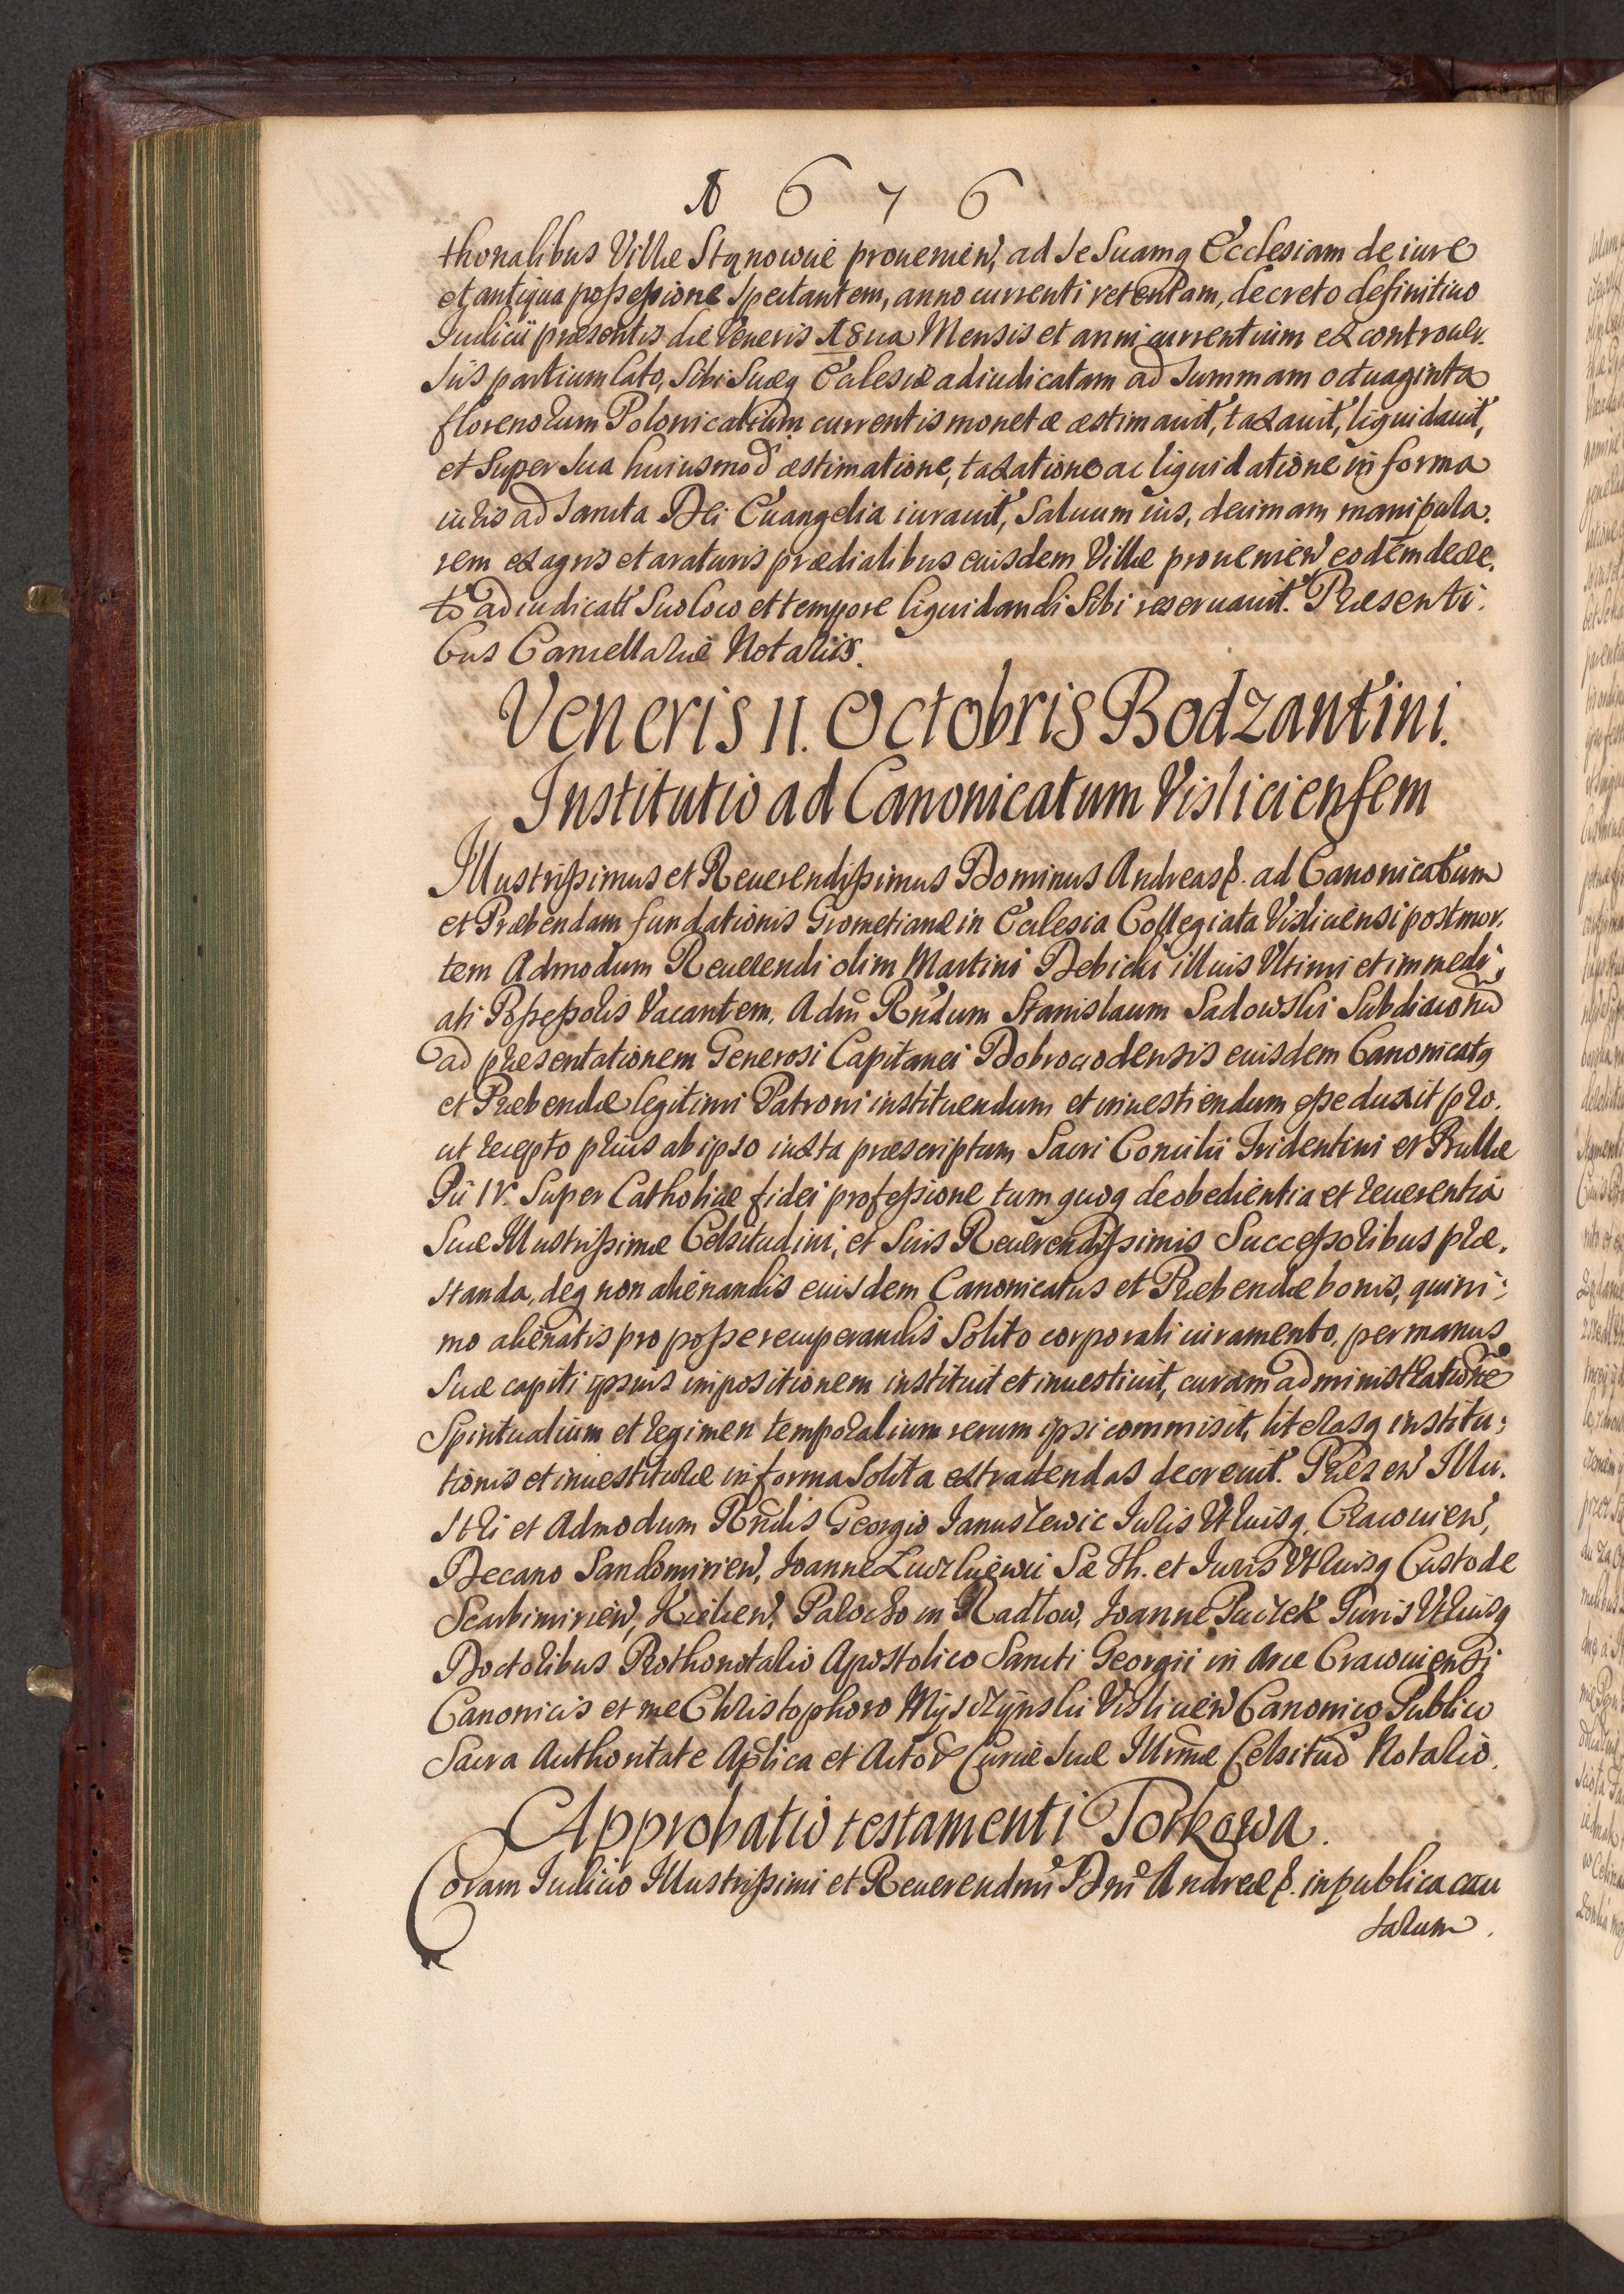 1 6 7 6
thonalibus Villæ Stęnowiæ prouenien, ad se Suamq Ecclesiam de iure
et antiqua possessione Spectantem, anno currenti retentam, decreto definitiuo
Iudicii præsentis die Veneris 18ua Mensis et anni currentium ex controuer.
siis partium lato, Sibi Suæq Ecclesiæ adiudicatam ad Summam octuaginta
florenorum Polonicalium currentis monetæ æstimauit, taxauit, liquidauit,
et Super sua huiusmod æstimatione, taxatione ac liquidatione in forma
iuris ad Sancta Dei Euangelia iurauit, Saluum ius, decimam manipula.
rem ex agris et araturis prædialibus eiusdem Villæ prouenien eodem decre.
to adiudicatt Suo loco et tempore liquidandi Sibi reseruauit. Præsenti.
bus Cancellariæ Notariis.
Veneris 11. Octobris Bodzantini.
Institutio ad Canonicatum Visliciensem
Illustrissimus et Reuerendissimus Dominus Andreas &. ad Canonicatum
et Præbendam fundationis Grometianæ in Ecclesia Collegiata Vislicensi post mor.
tem Admodum Reuerendi olim Martini Debicki illius Vltimi et immedi,
ati Possessoris Vacantem, Adm Rndum Stanislaum Sadowski Subdiaconu
ad præsentationem Generosi Capitanei Dobrociodensis eiusdem Canonicatq
et Præbendæ legitimi Patroni instituendum et inuestiendum esse duxit pro.
ut recepto prius ab ipso iuxta præscriptum Sacri Concilii Tridentini et Bullæ
Pii IV. Super Catholicæ fidei professione tum quoq de obedientia et reuerentia
Suæ Illustrissimæ Celsitudini, et Suis Reuerendissimis Successoribus præ.
standa, deq non alienandis eiusdem Canonicatus et Præbendæ bonis, quini:
mo alienatis pro posse recuperandis Solito corporali iuramento, per manus
Suæ capiti ipsius impositionem instituit et inuestiuit, curam administratione
Spiritualium et regimen temporalium rerum ipsi commisit, literasq institu:
tionis et inuestituræ in forma Solita extradendas decreuit. Præsen Illu.
stri et Admodum Rndis Georgio Januszewic Juris Vtriusq. Cracouien,
Decano Sandomirien, Joanne Sæ Th. et Iuris Vtriusq Custode
Scarbimirien, Kielcen, Parocho in Radlow, Joanne Puczek Iuris Vtriusq
Doctoribus Prothonotario Apostolico Sancti Georgii in Arce Cracouiensi
Canonicis et me Christophoro Myszczynski Vislicien Canonico Publico
Sacra Authoritate Aplica et Actor Curiæ Suæ Illrmæ Celsitud Notario.
Approbatio testamenti Torkowa.
Coram Iudicio Illustrissimi et Reuerendmi Dni Andreæ &. in publica cau
sarum.